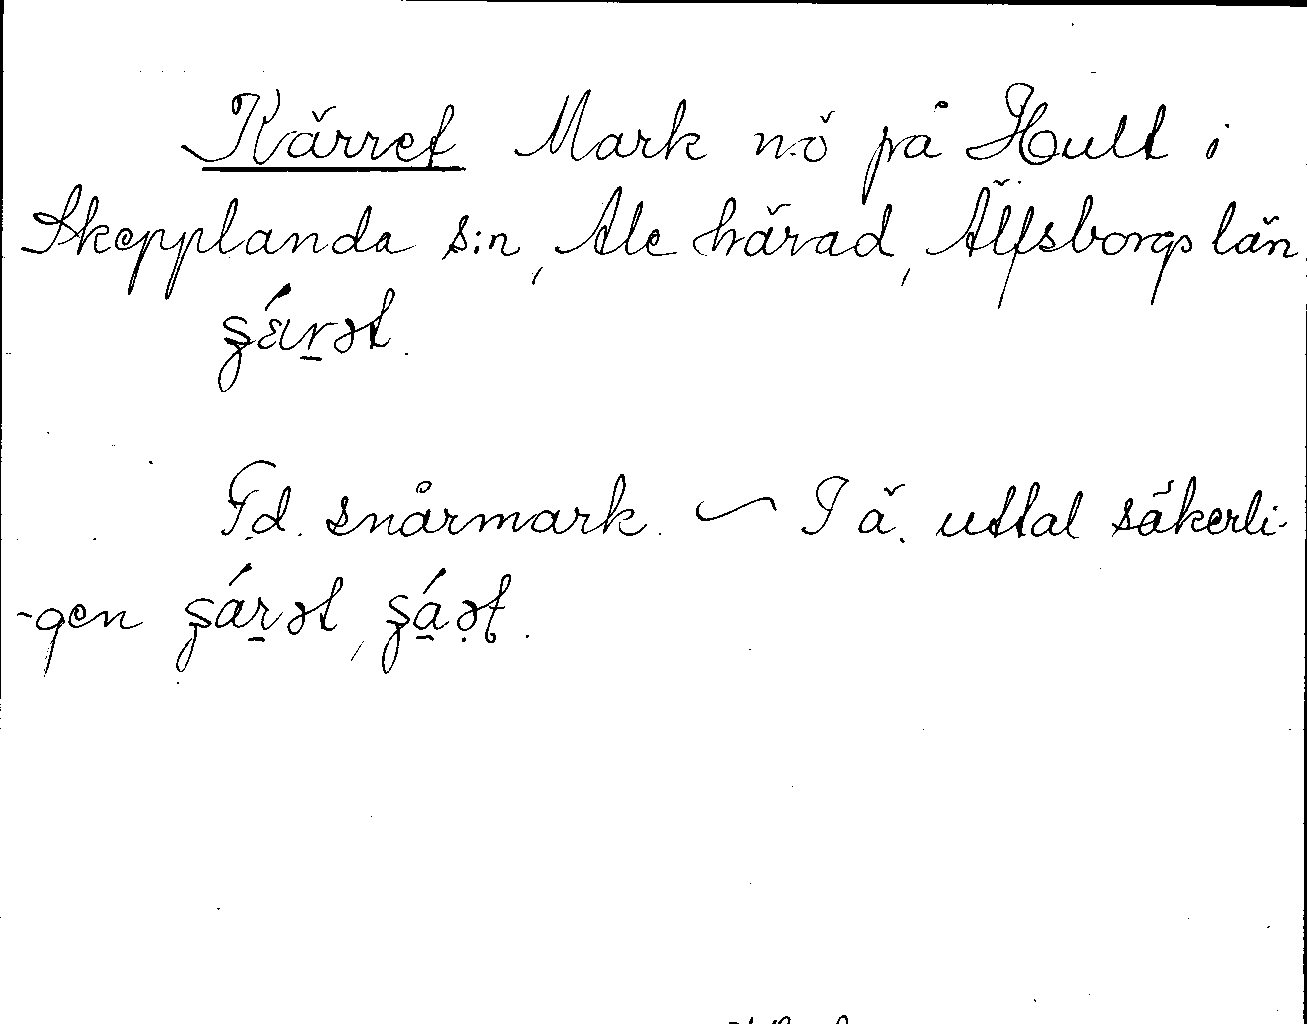 Kärret Mark nö på Hult i
Skepplanda s:n, Ale härad, Älfsborgs län.
Fd. snårmark. ~ I ä. uttal säkerli-
-gen